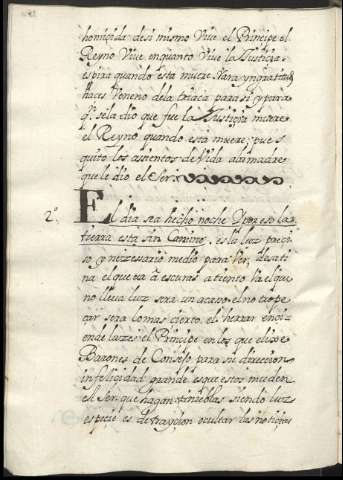 homiçida de si mismo Vive el Prinçipe el
Reyno Vive en quanto Vive la Justiçia
espira quando esta muere Rara yngratitud
haçes Veneno de la triaca para si y para
q. se la dio que fue la Justiçia muere
el Reyno quando esta muere, pues
quito los assientos de Vida a la madre
que le dio el Ser
2º
El dia sea hecho noche Y por eso la
tierra esta sin Camino, es la luz preçi-
so y neçessario medio para Ver, desati-
na el que va a escuras a tiento Va el que
no lleva luz sera un acaso el no trope
çar sera lo mas cierto el herrar ençi-
ende luzes el Prinçipe en los que elixe
Barones de Consejo para su direccion
infeliçidad grande es que estos muden
el Ser, que hagan tinieblas siendo luz
espeçie es de trayçion ocultar las notiçias